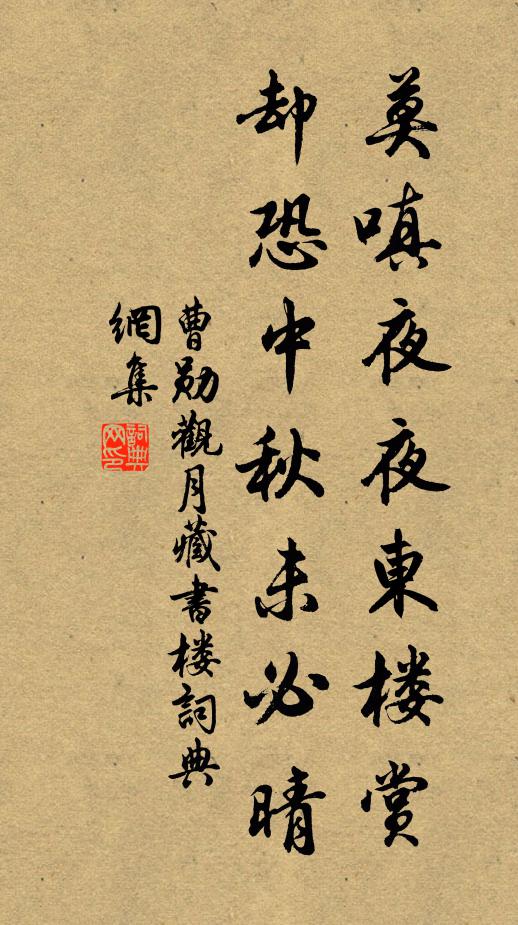 莫嗔夜夜東楼赏
却恐中秋未必晴
曹勋觀月藏書楼詞典
網集
詞典网印